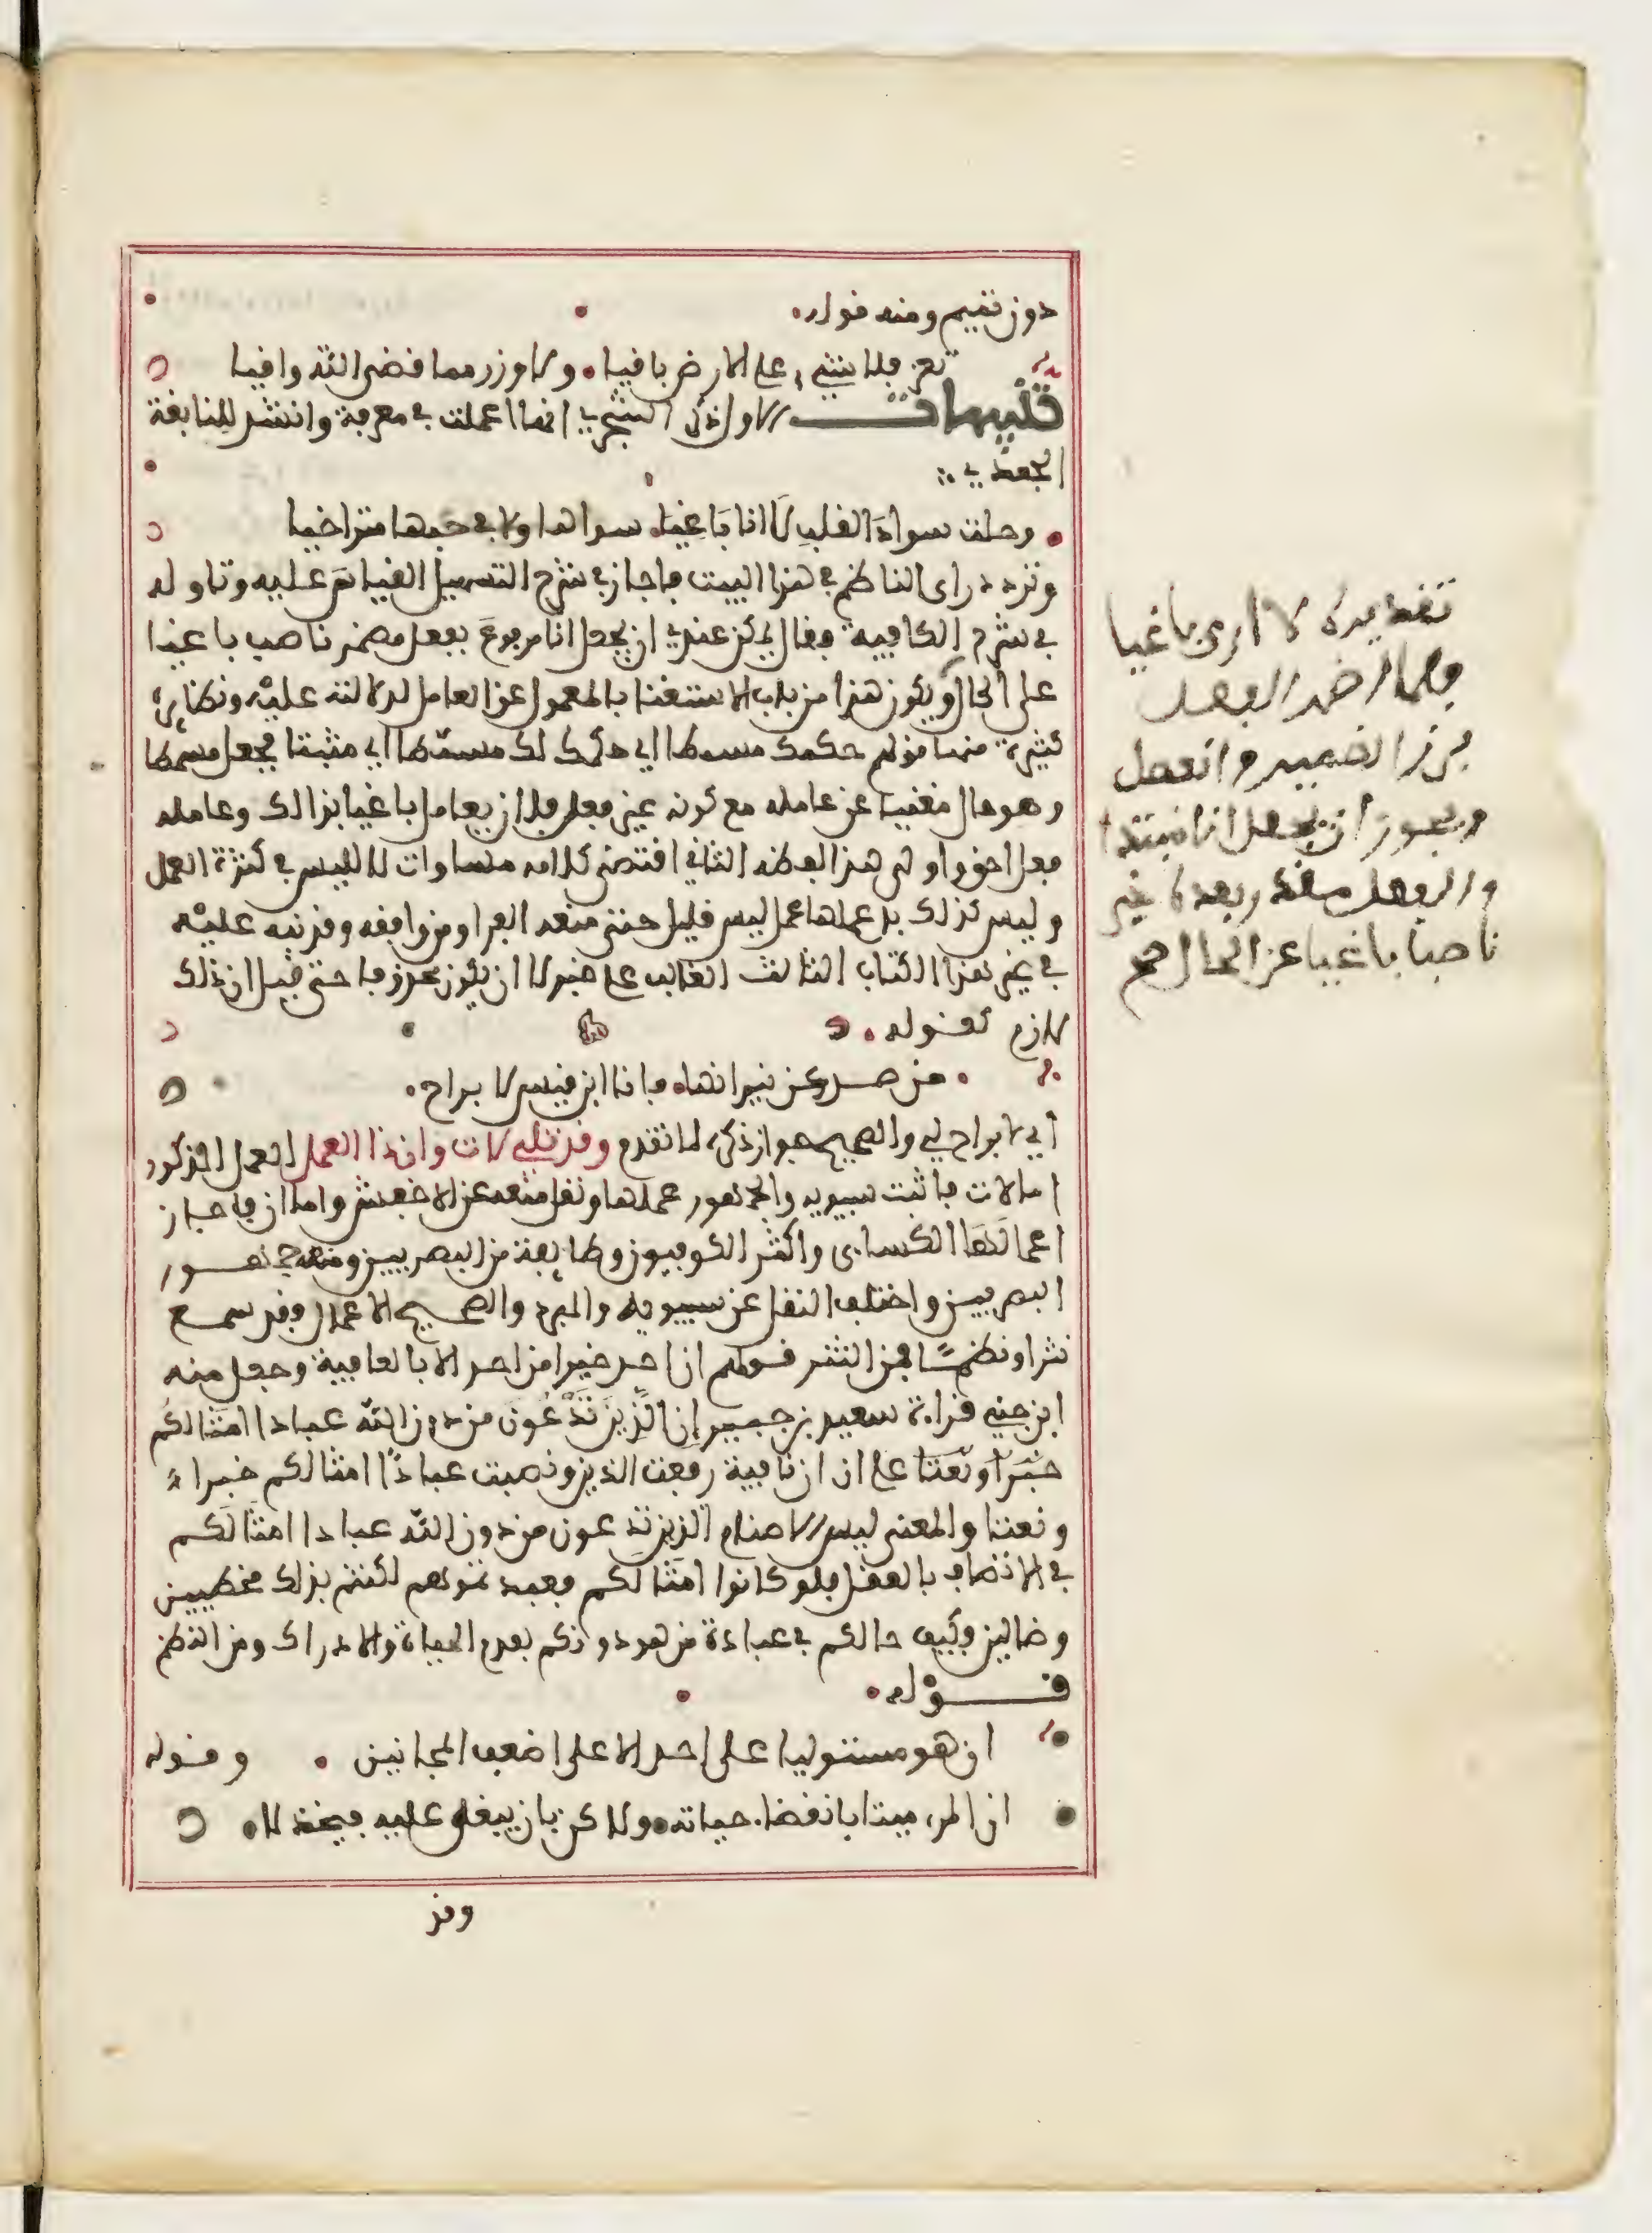 دون تميم ومنه قوله
تعز فلا شيء على الارض باقيا ولا وزر مما قضى الله واقيا
تنبيهات الاول ذكر الشجري انها اعملت في معرفة وانشد للنابغة
الجعدي
وحلت سواد القلب لا انا باغيا سواها ولا في حبها متراخيا
وتردد راى الناظم في هذا البيت فاجاز في شرح التسهيل القياس عليه وتاوله
في شرح الكافية فقال يمكن عندي ان يجعل انا مرفوع بفعل مضمر ناصب باغيا
على الحال ويكون هذا من باب الاستغنا بالمعمول عن العامل لدلالته عليه ونظائره
كثيرة منها قولهم حكمك مسمطا اي حكمك لك مسمطا اي مثبتا فجعل مسمطا
وهو حال مغنيا عن عامله مع كونه غير فعل فلان يعامل باغيا بذالك وعامله
فعل احق واولى هذا لفظه الثاني اقتضى كلامه مساوات لا لليس في كثرة العمل
وليس كذلك بل عملها عمل ليس قليل حتى منعه الفرا ومن وافقه وقد نبه عليه
في غير هذا الكتاب الثالث الغالب على خبر لا ان يكون محذوفا حتى قيل ان ذلك
لازم كقوله
من صد عن نيرانها فانا ابن قيس لا براح
اي لا براح لي والصحيح جواز ذكره لما تقدم وقد تلي لات وان ذا العمل العمل المذكور
اما لات فاثبت سيبويه والجمهور عملها ونقل منعه عن الاخفش واما ان فاجاز
اعمالها الكساى واكثر الكوفيون وطايفة من البصريين ومنعه جمهور
البصريين واختلف النقل عن سيبويه والمبرد والصحيح الاعمال وقد سمع
نثرا ونظما فمن النثر قولهم ان احد خيرا من احد الا بالعافية وجعل منه
ابن جني قراءة سعيد بن جبير إن الذين تدعون من دون الله عبادا امثالكم
خبرا ونعتا على ان ان نافية رفعت الذين ونصبت عبادا امثالكم خبرا
ونعتا والمعنى ليس الاصنام الذين تدعون من دون الله عبادا امثالكم
في الاتصاف بالعقل فلو كانوا امثالكم فعبدتموهم لكنتم بذلك مخطيين
وضالين فكيف حالكم في عبادة من هو دونكم بعدم الحياة والادراك ومن النظم
قوله
ان هو مستوليا على احد الا على اضعف المجانين وقوله
ان المرء ميتا بانقضاء حياته ولاكن بان يبغى عليه فيخذلا
وقد
تقديره لا ارى باغيا
فلما اضمر الفعل
برز الضمير وانفصل
ويجوز ان يجعل انا مبتدا
والفعل مقدر بعده خبر
ناصبا باغيا عن الحال صح